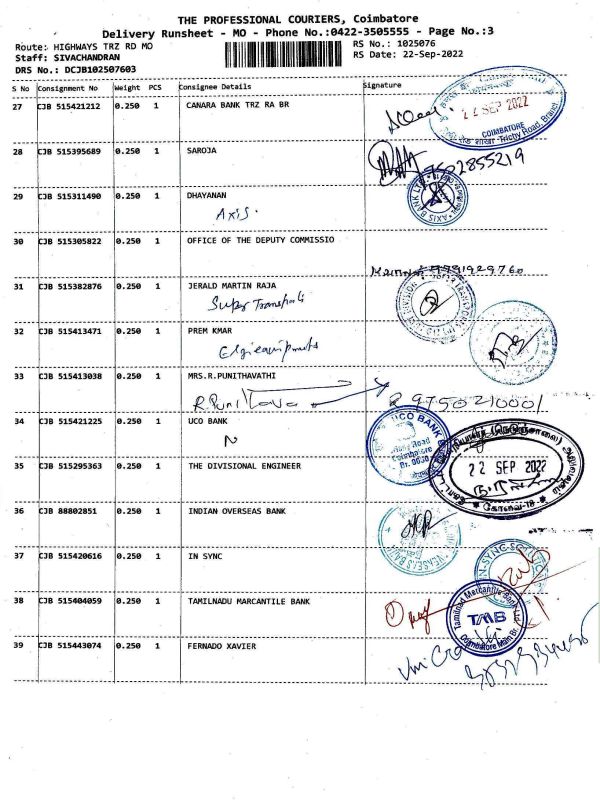 THE PROFESSIONAL COURIERS, Coimbatore
Delivery Runsheet - MO - Phone No.:0422-3505555 - Page No.:3
Route: HIGHWAYS TRZ RD MO
RS No.: 1025076
Staff: SIVACHANDRAN
RS Date: 22-Sep-2022
DRS No.: DCJB102507603
S No Consignment No Weight PCS Consignee Details Signature
27 CJB 515421212 0.250 1 CANARA BANK TRZ RA BR
22 SEP 2022
COIMBATORE
Trichy Road, Branch
28 CJB 515395689 0.250 1 SAROJA
29 CJB 515311490 0.250 1 DHAYANAN
Axis.
AXIS BANK LTD.
30 CJB 515305822 0.250 1 OFFICE OF THE DEPUTY COMMISSIO
31 CJB 515382876 0.250 1 JERALD MARTIN RAJA
Super Transports
32 CJB 515413471 0.250 1 PREM KMAR
Elgi equipments
33 CJB 515413038 0.250 1 MRS.R.PUNITHAVATHI
9750210001
34 CJB 515421225 0.250 1 UCO BANK
N
UCO BANK
Road
Coimbatore
35 CJB 515295363 0.250 1 THE DIVISIONAL ENGINEER
22 SEP 2022
கோவை-18
36 CJB 88802851 0.250 1 INDIAN OVERSEAS BANK
37 CJB 515420616 0.250 1 IN SYNC
38 CJB 515404059 0.250 1 TAMILNADU MARCANTILE BANK
Tamilnad Mercantile Bank
TMB
Coimbatore Main Br.
39 CJB 515443074 0.250 1 FERNADO XAVIER